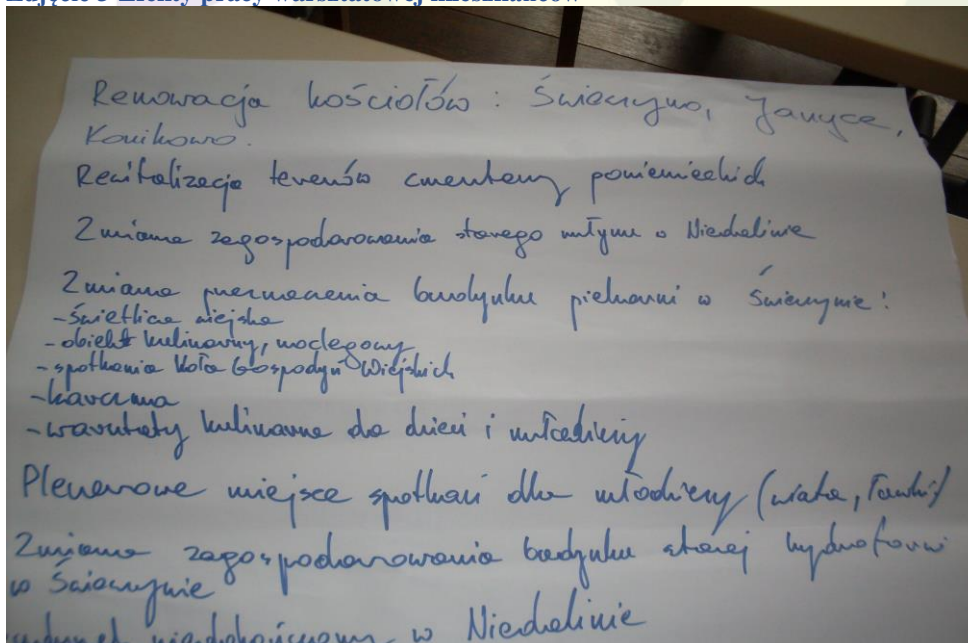 Renowacja kościołów : Świeszyno, Jarzyce,
Konikowo.
Rewitalizacja terenów cmentarzy poniemieckich
Zmiana zagospodarowania starego młynu w Niedalinie
Zmiana przeznaczenia budynku piekarni w Świeszynie:
- świetlica wiejska
- obiekt kulinarny, noclegowy
- spotkania Koła Gospodyń Wiejskich
- karczma
- warsztaty kulinarne dla dzieci i młodzieży
Plenerowe miejsce spotkań dla młodzieży (wiata, ławki)
Zmiana zagospodarowania budynku starej hydroforni
w Świeszynie
w Niedalinie